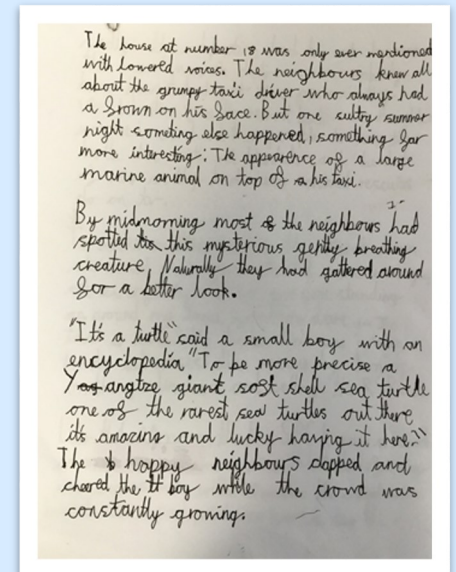 The house at number 18 was only ever mentioned
with lowered voices. The neighbours knew all
about the grumpy taxi driver who always had
a frown on his face. But one sultry summer
night someting else happened, something far
more interesting: The appearence of a large
marine animal on top of his taxi.
By midmorning most of the neighbours had
spotted this mysterious gently breathing
creature. Naturally they had gathered around
for a better look.
"It's a turtle" said a small boy with an
encyclopedia "To be more precise a
Yangtze giant soft shell sea turtle
one of the rarest sea turtles out there
it's amazing and lucky having it here."
The happy neighbours clapped and
cheered the boy while the crowd was
constantly growing.